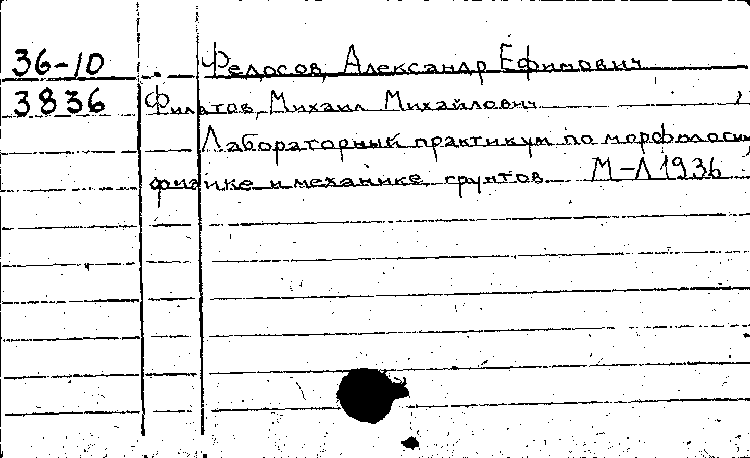 36-10 Федосов, Александр Ефимович
3836 Филатов, Михаил Михайлович
Лабораторный практикум по морфологии,
физике и механике грунтов М-Л 1936